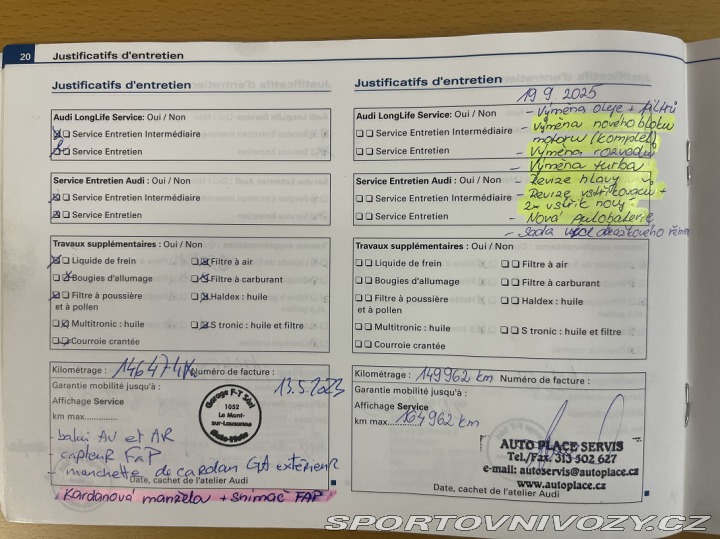 20 Justificatifs d'entretien
Justificatifs d'entretien
Audi LongLife Service: Oui / Non
Service Entretien Intermédiaire
Service Entretien
Service Entretien Audi : Oui / Non
Service Entretien Intermédiaire
Service Entretien
Travaux supplémentaires : Oui / Non
Liquide de frein Filtre à air
Bougies d'allumage Filtre à carburant
Filtre à poussière Haldex : huile
et à pollen
Multitronic : huile S tronic : huile et filtre
Courroie crantée
Kilométrage : 146474 Km Numéro de facture :
Garantie mobilité jusqu'à : 13.5.2023
Affichage Service
km max..............
Garage F-T Sàrl
1052
Le Mont-
sur-Lausanne
- balai AV et AR
- capteur FaP
- manchette de cardan GA extérieur
Date, cachet de l'atelier Audi
Kardanová manžeta + snímač FAP
Justificatifs d'entretien
19 9. 2025
Audi LongLife Service: Oui / Non
Service Entretien Intermédiaire
Service Entretien
Service Entretien Audi : Oui / Non
Service Entretien Intermédiaire
Service Entretien
- Výměna oleje + filtrů
- Výměna nového bloku
motoru (komplet)
- Výměna rozvodů
- Výměna turba
- Revize hlavy
- Revize vstřikovačů +
2x vstřik nový
- Nová Autobaterie
- Sada vícedrážkového řemene
Travaux supplémentaires : Oui / Non
Liquide de frein Filtre à air
Bougies d'allumage Filtre à carburant
Filtre à poussière Haldex : huile
et à pollen
Multitronic : huile S tronic : huile et filtre
Courroie crantée
Kilométrage : 149962 km Numéro de facture :
Garantie mobilité jusqu'à :
Affichage Service
km max.......... 164962 km
AUTO PLACE SERVIS
Tel./Fax: 313 502 627
e-mail: autoservis@autoplace.cz
www.autoplace.cz
Date, cachet de l'atelier Audi
SPORTOVNIVOZY.CZ